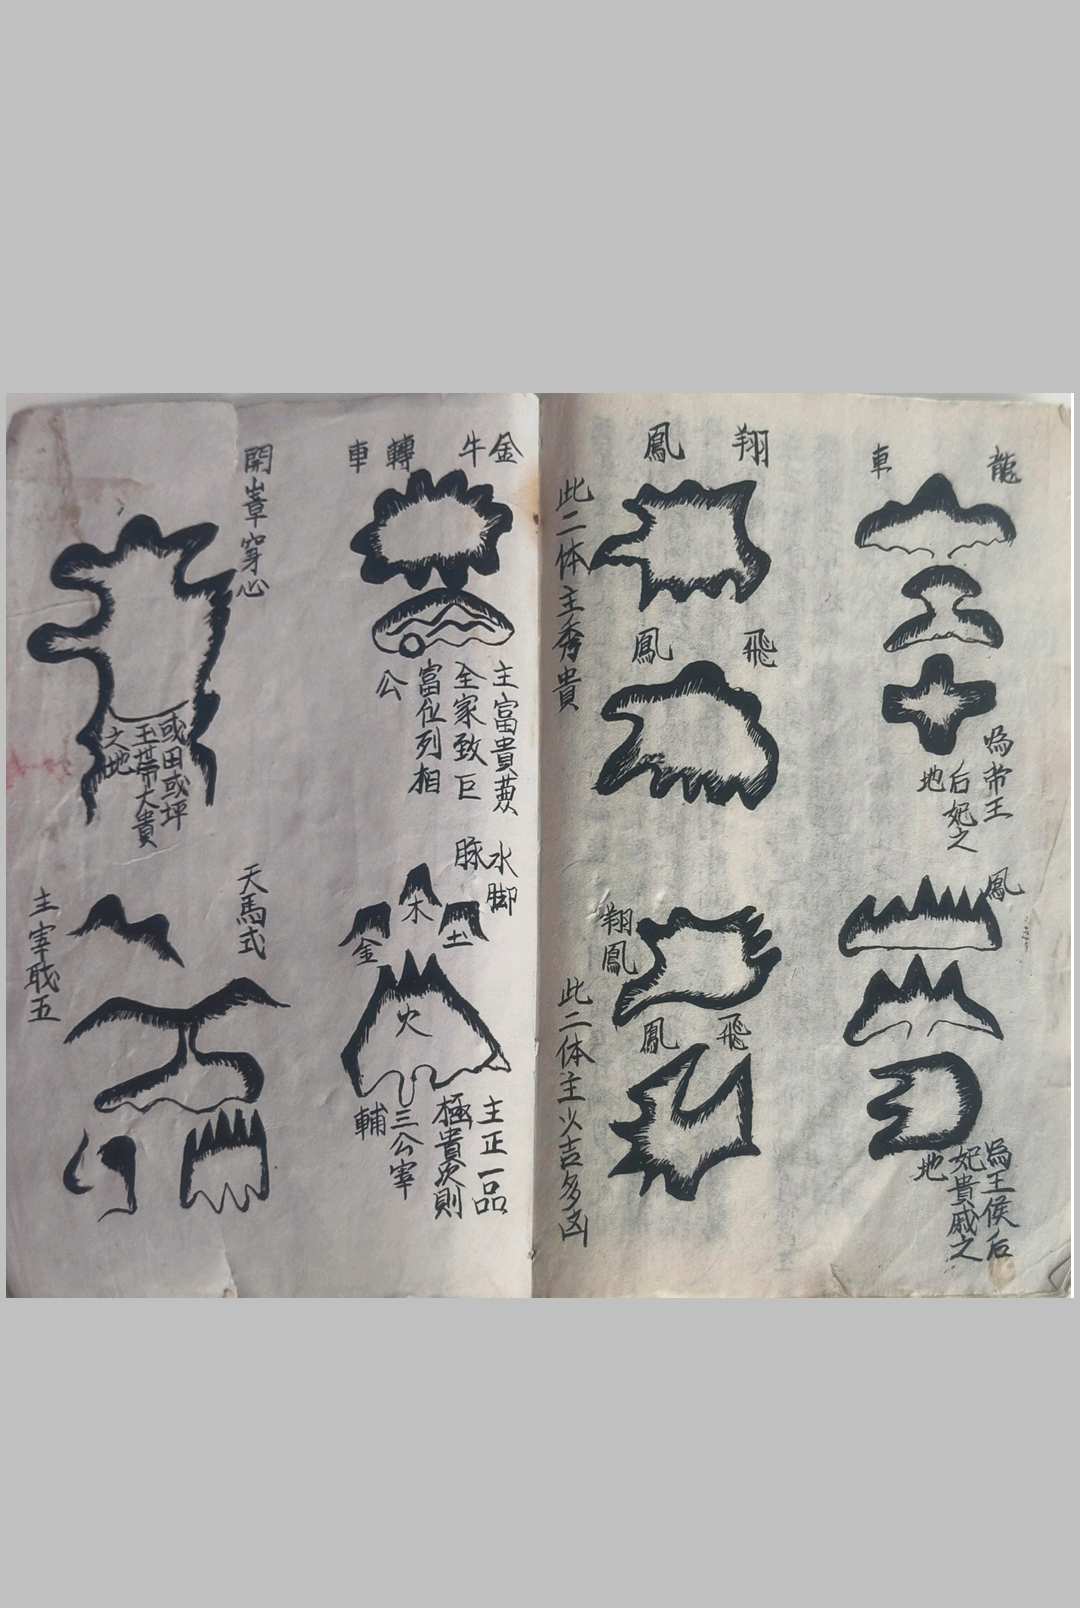 龍車
為帝王
后妃之
地
鳳
為王侯后
妃貴戚之
地
翔鳳
飛鳳
此二体主秀貴
翔鳳
飛鳳
此二体主少吉多凶
金牛轉車
主富貴
全家致巨
富位列相
公
水脚
脉
木
金
土
火
主正一品
極貴次則
三公宰
輔
開嶂穿心
或田或坪
玉帶大貴
之地
天馬式
主宰職五